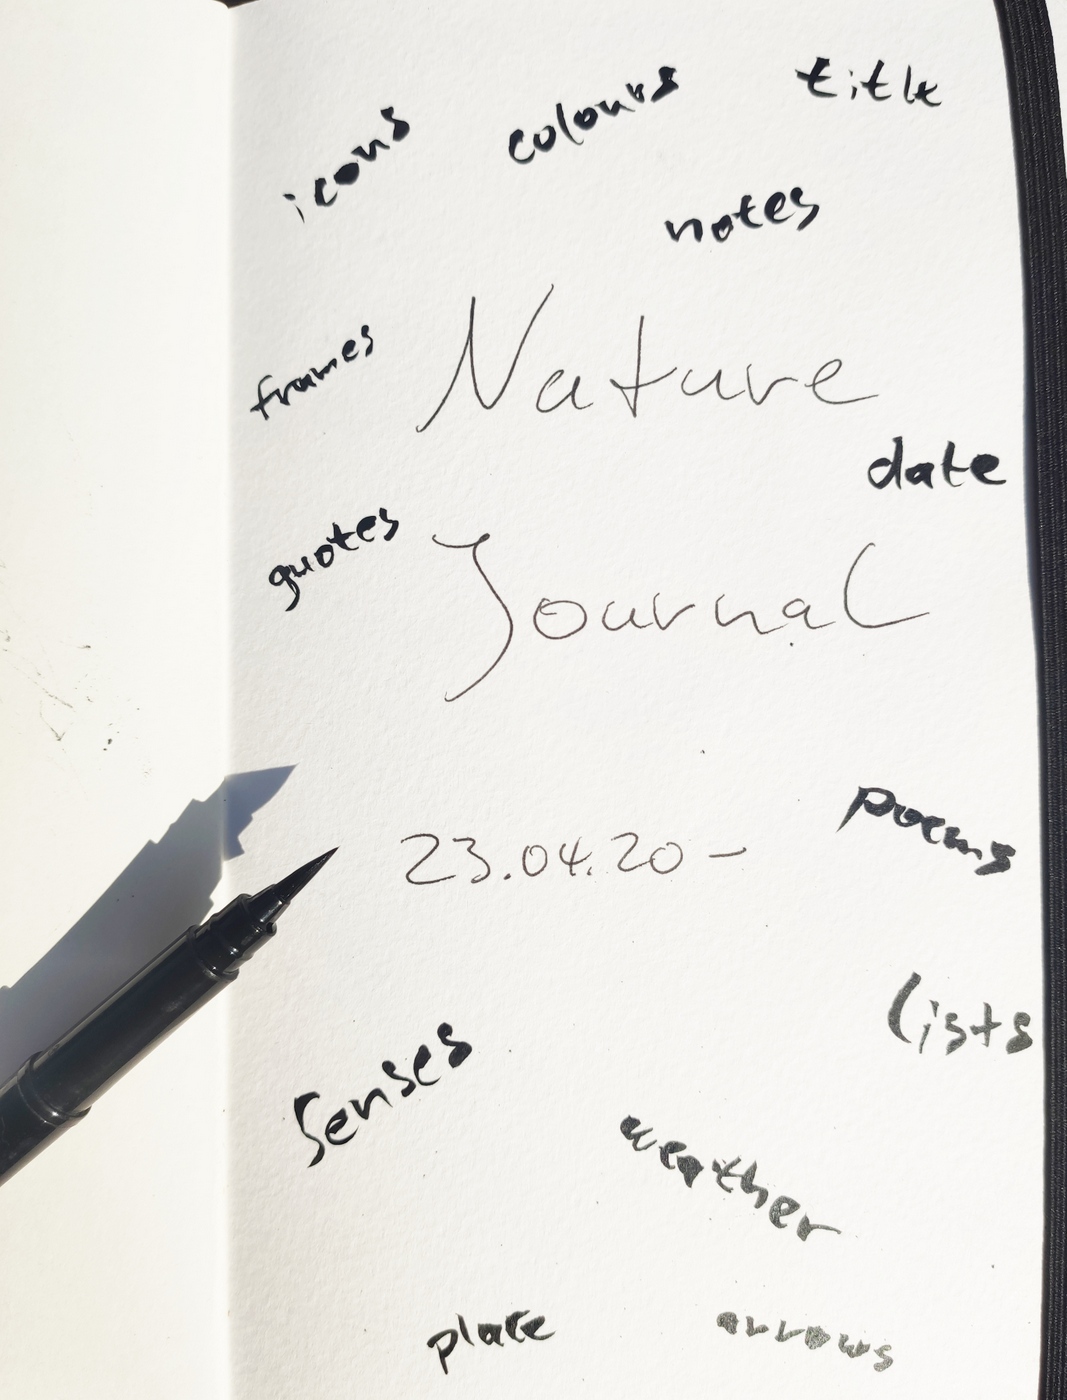 icons
colours
title
notes
frames
Nature
date
quotes
Journal
23.04.20 –
poems
lists
Senses
weather
place
arrows